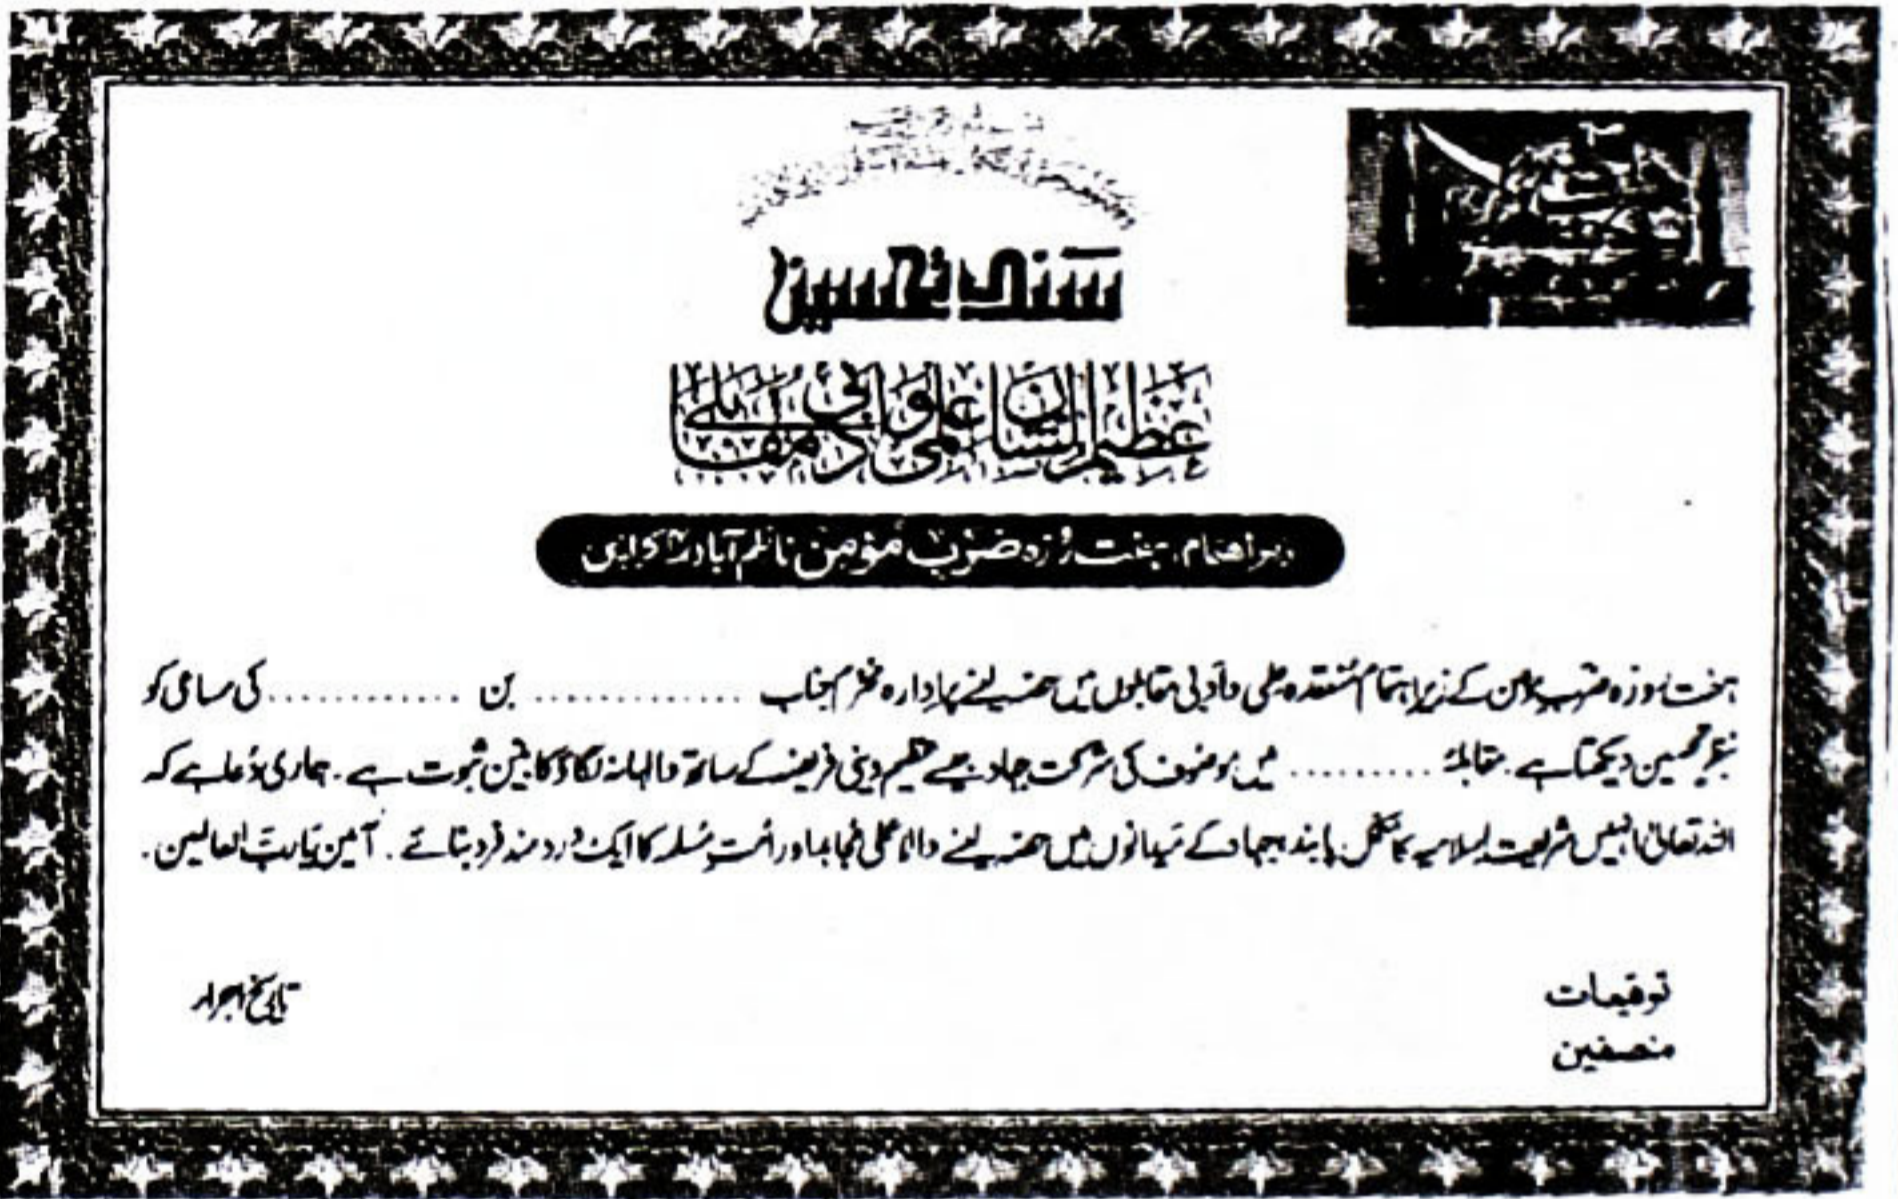 سند تحسین
عظیم الشان علمی و ادبی مقابلے
زیر اہتمام: ہفت روزہ ضرب مؤمن ناظم آباد ۴ کراچی
ہفت روزہ ضرب مؤمن کے زیر اہتمام منعقدہ علمی و ادبی مقابلوں میں حصہ لینے پر ادارہ محترم جناب .................... بن .................... کی مساعی کو
بنظر تحسین دیکھتا ہے۔ مقابلۂ .......... میں موصوف کی شرکت جہاد جیسے عظیم دینی فریضہ کے ساتھ والہانہ لگاؤ کا بیّن ثبوت ہے۔ ہماری دُعا ہے کہ
اللہ تعالیٰ انہیں شریعت اسلامیہ کا مکمل پابند، جہاد کے میدانوں میں حصہ لینے والا عملی مجاہد اور اُمتِ مُسلمہ کا ایک درد مند فرد بنائے۔ آمین یا ربّ العالمین۔
توقیعات
منصفین
تاریخ اجراء